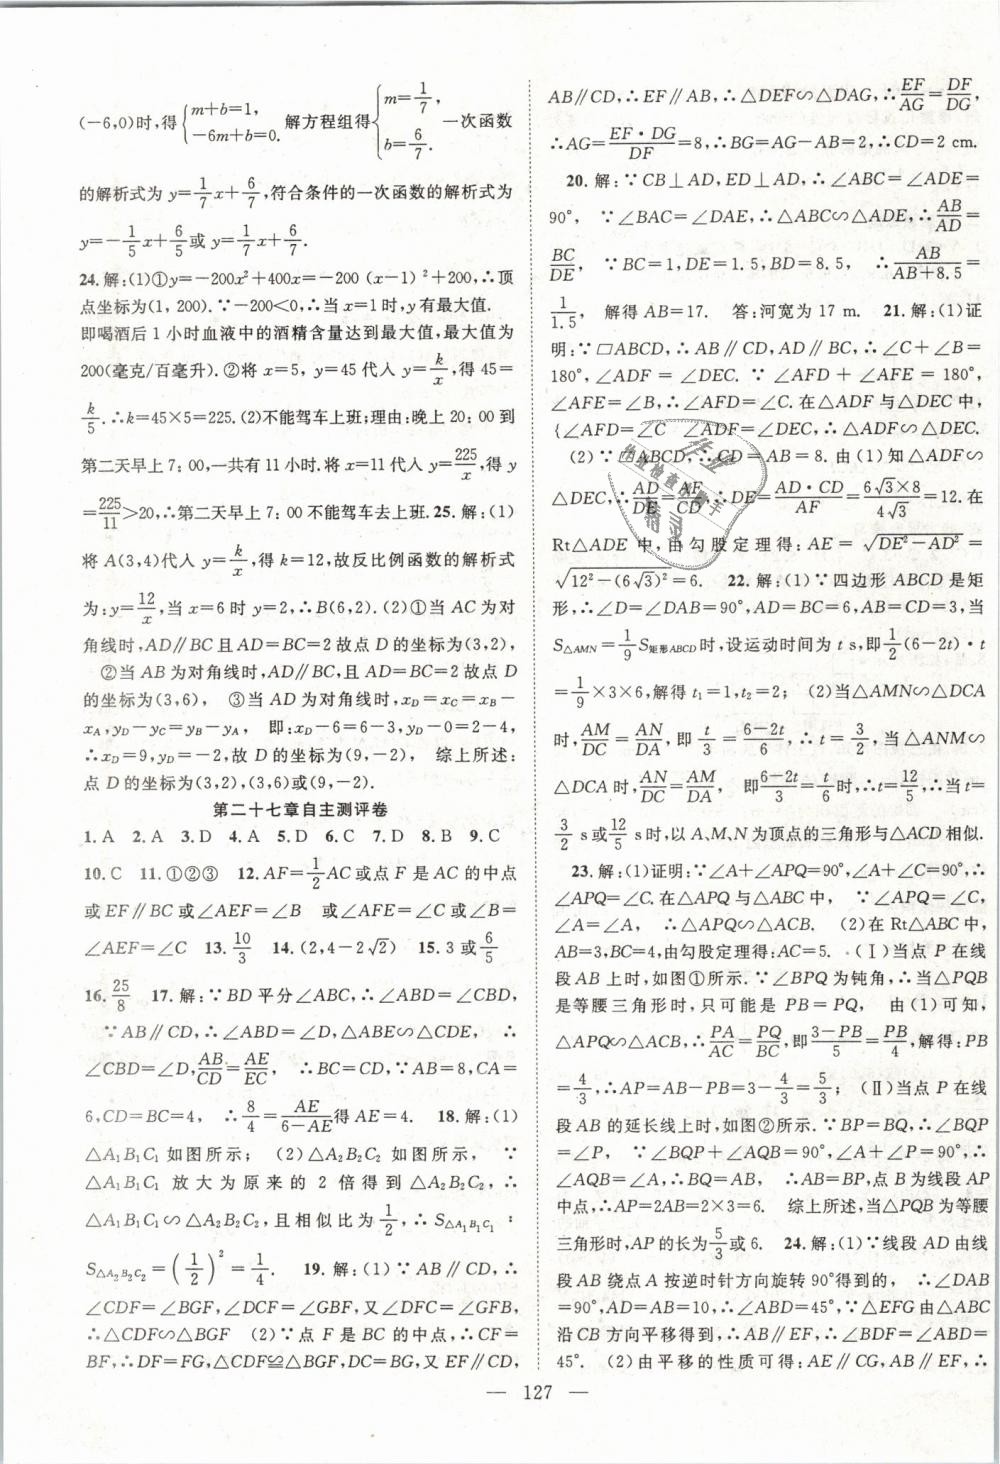 (-6,0)时,得{m+b=1, -6m+b=0. 解方程组得{m=1/7, b=6/7. 一次函数
的解析式为 y=1/7x+6/7,符合条件的一次函数的解析式为
y=-1/5x+6/5或 y=1/7x+6/7.
24.解:(1)①y=-200x²+400x=-200 (x-1) ²+200,∴顶
点坐标为(1, 200).∵-200<0,∴当 x=1时,y有最大值.
即喝酒后 1 小时血液中的酒精含量达到最大值,最大值为
200(毫克/百毫升).②将 x=5, y=45代入 y=k/x,得 45=
k/5.∴k=45×5=225.(2)不能驾车上班;理由:晚上 20：00到
第二天早上 7：00,一共有 11小时.将 x=11代入 y=225/x,得 y
=225/11>20,∴第二天早上 7：00不能驾车去上班.25.解:(1)
将 A(3,4)代人 y=k/x,得 k=12,故反比例函数的解析式
为:y=12/x,当 x=6时 y=2,∴B(6,2).(2)①当 AC为对
角线时,AD∥BC且AD=BC=2故点 D的坐标为(3,2),
②当 AB 为对角线时,AD∥BC且 AD=BC=2 故点 D
的坐标为(3,6), ③当 AD 为对角线时,x_D-x_C=x_B-
x_A,y_D-y_C=y_B-y_A, 即:x_D-6=6-3,y_D-0=2-4,
∴x_D=9,y_D=-2,故 D的坐标为(9,-2), 综上所述:
点 D的坐标为(3,2),(3,6)或(9,-2).
第二十七章自主测评卷
1. A 2. A 3. D 4. A 5. D 6. C 7. D 8. B 9. C
10. C 11.①②③ 12. AF=1/2AC或点 F 是 AC 的中点
或 EF∥BC或∠AEF=∠B 或∠AFE=∠C或∠B=
∠AEF=∠C 13. 10/3 14. (2,4-2√2) 15. 3 或 6/5
16. 25/8 17. 解:∵BD 平分∠ABC,∴∠ABD=∠CBD,
∵AB∥CD,∴∠ABD=∠D,△ABE∽△CDE, ∴
∠CBD=∠D,AB/CD=AE/EC, ∴BC=CD,∵AB=8,CA=
6,CD=BC=4, ∴8/4=AE/(6-AE)得 AE=4. 18. 解:(1)
△A₁B₁C₁ 如图所示; (2)△A₂B₂C₂ 如图所示,∵
△A₁B₁C₁ 放大为原来的 2 倍得到△A₂B₂C₂,∴
△A₁B₁C₁∽△A₂B₂C₂,且相似比为1/2,∴S△A₁B₁C₁ ：
S△A₂B₂C₂=(1/2)²=1/4. 19. 解:(1)∵AB∥CD,∴
∠CDF=∠BGF,∠DCF=∠GBF,又∠DFC=∠GFB,
∴△CDF∽△BGF (2)∵点 F是 BC的中点,∴CF=
BF,∴DF=FG,△CDF≌△BGF,DC=BG,又 EF∥CD,
AB∥CD,∴EF∥AB,∴△DEF∽△DAG,∴EF/AG=DF/DG,
∴AG=EF·DG/DF=8,∴BG=AG-AB=2,∴CD=2 cm.
20. 解:∵CB⊥AD,ED⊥AD,∴∠ABC=∠ADE=
90°, ∵∠BAC=∠DAE,∴△ABC∽△ADE,∴AB/AD=
BC/DE, ∵BC=1,DE=1.5,BD=8.5, ∴AB/(AB+8.5)=
1/1.5, 解得 AB=17. 答:河宽为 17 m. 21. 解:(1)证
明:∵□ABCD,∴AB∥CD,AD∥BC,∴∠C+∠B=
180°,∠ADF=∠DEC.∵∠AFD+∠AFE=180°,
∠AFE=∠B,∴∠AFD=∠C.在△ADF与△DEC中,
{∠AFD=∠C ∠ADF=∠DEC,∴△ADF∽△DEC.
(2)∵□ABCD,∴CD=AB=8.由 (1) 知△ADF∽
△DEC,∴AD/DE=AF/CD,∴DE=AD·CD/AF=6√3×8/4√3=12.在
Rt△ADE 中,由勾股定理得:AE=√(DE²-AD²)=
√(12²-(6√3)²)=6. 22. 解:(1)∵四边形 ABCD是矩
形,∴∠D=∠DAB=90°,AD=BC=6,AB=CD=3,当
S△AMN=1/9S矩形ABCD时,设运动时间为 t s,即1/2(6-2t)·t
=1/9×3×6,解得 t₁=1,t₂=2; (2)当△AMN∽△DCA
时,AM/DC=AN/DA,即 t/3=(6-2t)/6,∴t=3/2,当△ANM∽
△DCA时,AN/DC=AM/DA, 即(6-2t)/3=t/6,∴t=12/5,∴当 t=
3/2 s或12/5 s时,以 A、M、N为顶点的三角形与△ACD相似.
23.解:(1)证明:∵∠A+∠APQ=90°,∠A+∠C=90°,∴
∠APQ=∠C.在△APQ与△ABC中, ∵∠APQ=∠C,∠
A=∠A, ∴△APQ∽△ACB. (2)在 Rt△ABC中,
AB=3,BC=4,由勾股定理得:AC=5. (Ⅰ)当点 P 在线
段 AB 上时,如图①所示.∵∠BPQ 为钝角,∴当△PQB
是等腰三角形时,只可能是 PB=PQ, 由(1)可知,
△APQ∽△ACB,∴PA/AC=PQ/BC,即(3-PB)/5=PB/4,解得:PB
=4/3,∴AP=AB-PB=3-4/3=5/3; (Ⅱ)当点 P在线
段 AB 的延长线上时,如图②所示.∵BP=BQ,∴∠BQP
=∠P, ∵∠BQP+∠AQB=90°,∠A+∠P=90°,∴
∠AQB=∠A,∴BQ=AB, ∴AB=BP,点 B为线段 AP
中点,∴AP=2AB=2×3=6. 综上所述,当△PQB为等腰
三角形时,AP的长为5/3或 6. 24. 解:(1)∵线段 AD由线
段 AB 绕点 A 按逆时针方向旋转 90°得到的,∴∠DAB
=90°,AD=AB=10,∴∠ABD=45°,∵△EFG由△ABC
沿 CB 方向平移得到,∴AB∥EF,∴∠BDF=∠ABD=
45°. (2)由平移的性质可得:AE∥CG,AB∥EF,∴
— 127 —
作业
作业检查小助手
精灵